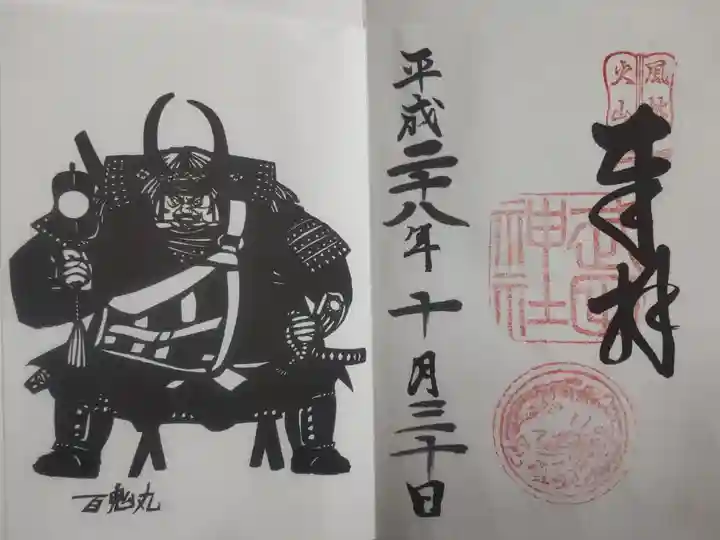 奉拝
風林
火山
武田
神社
平成二十八年 十月三十日
百鬼丸